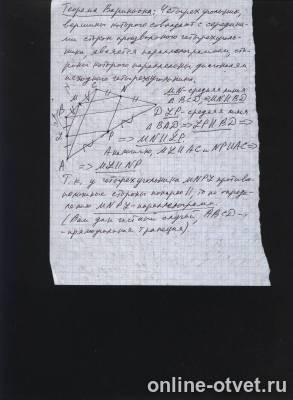 Теорема Вариньона: Четырехугольник,
вершины которого совпадают с середина-
ми сторон произвольного четырехуголь-
ника является параллелограммом, сто-
роны которого параллельны диагоналям
исходного четырехугольника.
MN - средняя линия
△BCD ⇒ MN∥BD
LP - средняя линия
△BAD ⇒ LP∥BD ⇒
⇒ MN∥LP.
Аналогично, ML∥AC и NP∥AC ⇒
⇒ ML∥NP
Т.к. у четырехугольника MNPL противо-
положные стороны попарно ∥, то по опреде-
лению MNPL - параллелограмм
(Ваш частный случай, ABCD -
- прямоугольная трапеция)
online-otvet.ru